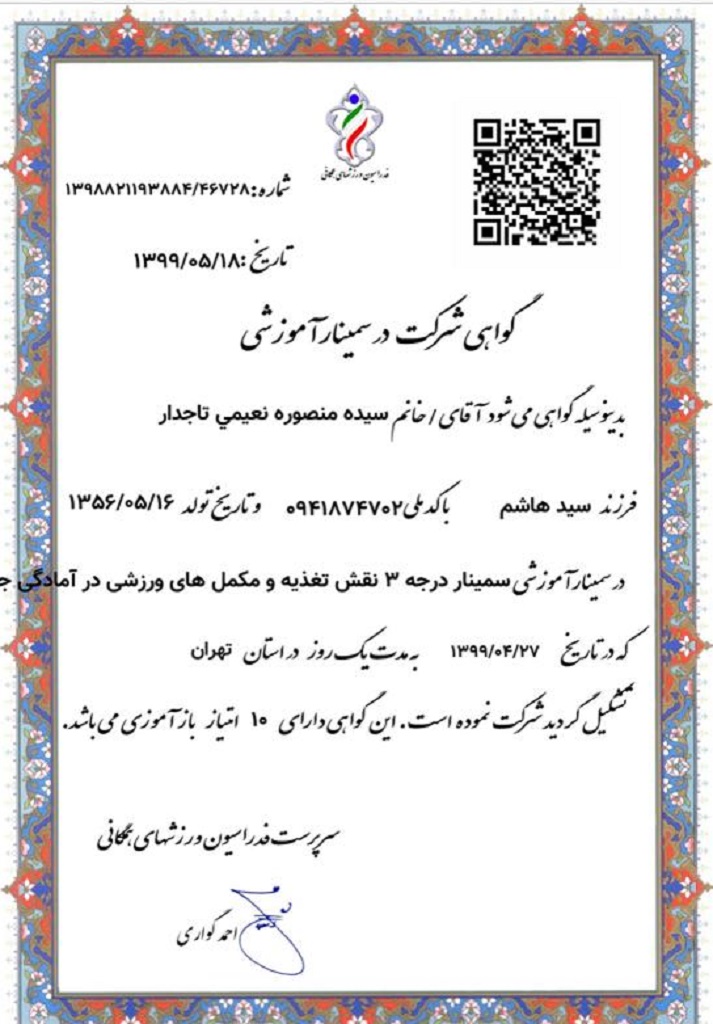 فدراسیون ورزشهای همگانی
شماره: ۱۳۹۸۸۲۱۱۹۳۸۸۴/۴۶۷۲۸
تاریخ: ۱۳۹۹/۰۵/۱۸
گواهی شرکت در سمینار آموزشی
بدینوسیله گواهی می شود آقای / خانم سیده منصوره نعیمي تاجدار
فرزند سید هاشم با کد ملی ۰۹۴۱۸۷۴۷۰۲ و تاریخ تولد ۱۳۵۶/۰۵/۱۶
در سمینار آموزشی سمینار درجه ۳ نقش تغذیه و مکمل های ورزشی در آمادگی
که در تاریخ ۱۳۹۹/۰۴/۲۷ به مدت یک روز در استان تهران
تشکیل گردید شرکت نموده است. این گواهی دارای ۱۰ امتیاز باز آموزی می باشد.
سرپرست فدراسیون ورزشهای همگانی
احمد گواری